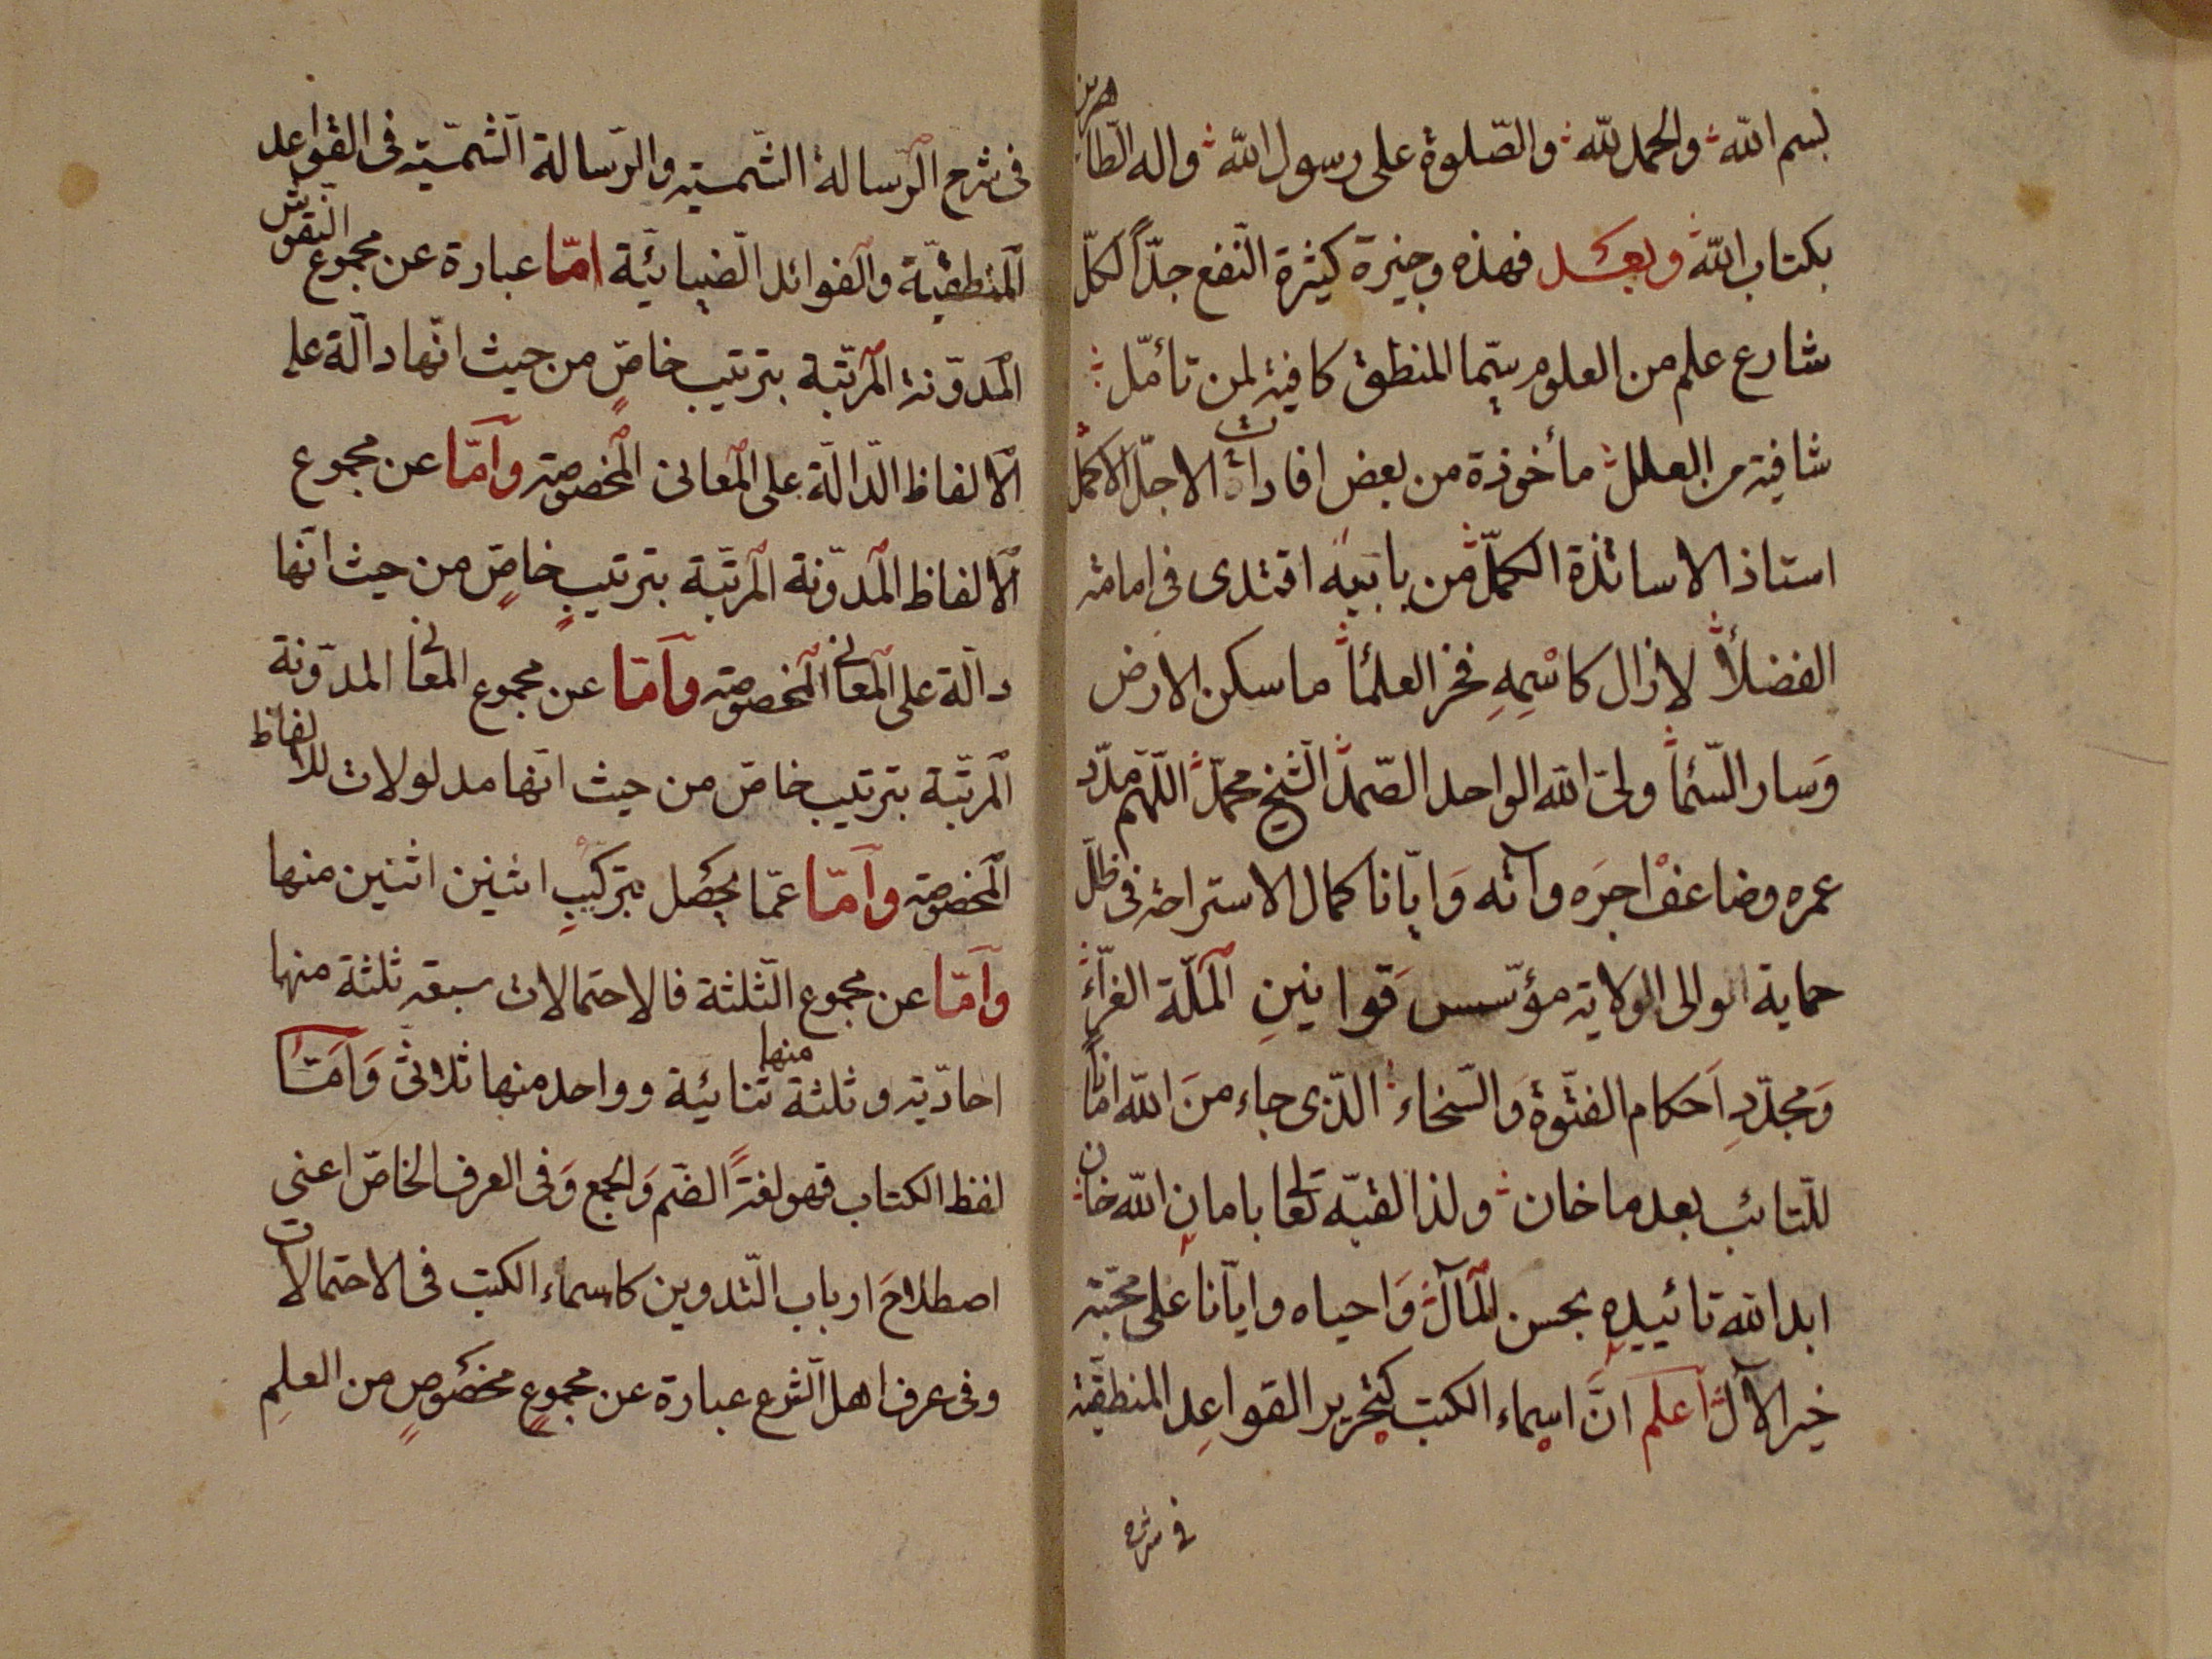 بسم الله والحمد لله والصّلوة على رسول الله واله الطّاهرين
بكتاب الله وبعد فهذه وجيزة كثيرة النّفع جدّاً لكلّ
شارع علم من العلوم سيّما المنطق كافية لمن تأمّل
شافية من العلل مأخوذة من بعض افادات الاجلّ الاكمل
استاذ الاساتذة الكمّل من بابيه اقتدى فى امامته
الفضلأ لا زال كاسْمِهِ فخر العلمأ ما سكن الارض
وَسار السّمأ ولىّ الله الواحد الصّمد الشّيخ محمّد اللّهم مدّد
عمره وضاعفْ اجرَه وآته وَايّانا كمال الاستراحة فى ظلّ
حماية الوالى الولاية مؤسّس قوانينِ الملّة الغرّاء
وَمجدّدِ اَحكام الفتّوة وَالسّخاء الّذى جاء منَ الله امانا
للتّائب بعد ما خان ولذا لقبّه تعالى بامانِ الله خان
ابد الله تائييدِه بحسن المآل وَاحياه وايّانا على محبّة
خير الآل اعلم انّ اسماء الكتب كتحرير القواعِد المنطقيّة
فى شرح
فى شرح الرّسالة الشّمسيّة والرّسالة الشّمسيّة فى القواعد
المنطقيّة والفوائد الضّيائيّة امّا عبارة عن مجموع النّقوش
المدوّنة المرتّبة بترتيب خاصٍّ من حيث انّها دالّة على
الالفاظ الدّالّة على المعانى المخصوصة وامّا عن مجموع
الالفاظ المدوّنة المرتّبة بترتيبٍ خاصٍّ من حيث انّها
دالّة على المعانى المخصوصة وامّا عن مجموع المعانى المدوّنة
المرتّبة بترتيب خاصّ من حيث انّها مدلولات للالفاظ
المخصوصة وامّا عمّا يحصل بتركيبِ اثنين اثنين منها
وامّا عن مجموع الثّلثة فالاحتمالات سبعة ثلثة منها
احاديّة وثلثة منها ثنائيّة وواحد منها ثلاثىّ وَامّا
لفظ الكتاب فهو لغةً الضّم وَالجمع وَفى العرف الخاصّ اعنى
اصطلاحَ ارباب التّدوين كاسماء الكتب فى الاحتمالات
وفى عرف اهل الشّرع عبارة عن مجموعٍ مخصوصٍ من العلمِ